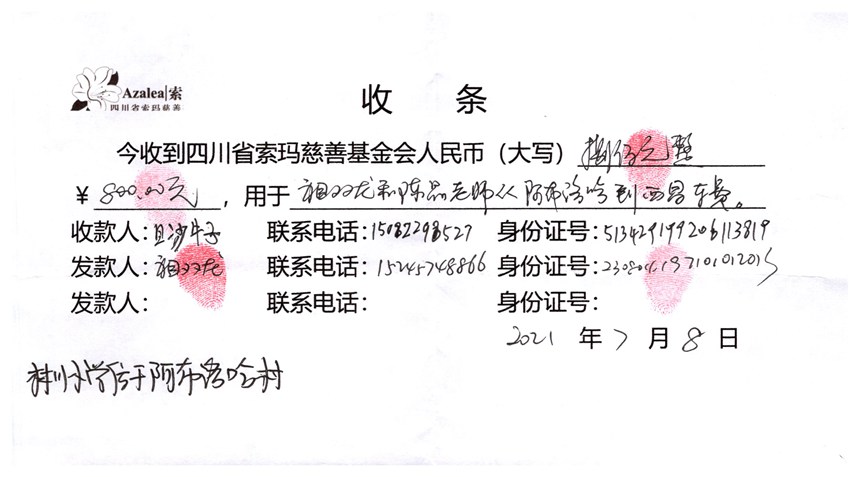 Azalea|索
四川省索玛慈善
收 条
今收到四川省索玛慈善基金会人民币（大写）捌佰元整
¥ 800.00元 ，用于 祖双龙和陈品老师从阿布洛哈到西昌车费。
收款人：且沙牛子 联系电话：15082298527 身份证号：513429199206113819
发款人：祖双龙 联系电话：15245748866 身份证号：
发款人： 联系电话： 身份证号：
2021 年 7 月 8 日
小学位于阿布洛哈村